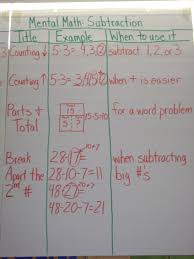 Mental Math: Subtraction
Title Example When to use it
Counting ↓ 5-3= 4,3,② subtract 1, 2, or 3
Counting ↑ 5-3= when + is easier
Parts + Total 15 5 ? 15-5=10 for a word problem
Break 28-17= 10+7 when subtracting
Apart the 28-10-7=11 big #'s
2nd # 48-27= 20+7
48-20-7=21